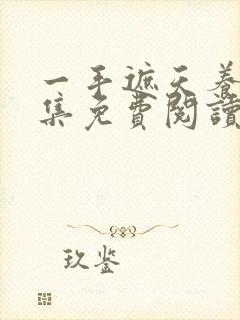 一手遮天养
集免費閱讀
玖鉴